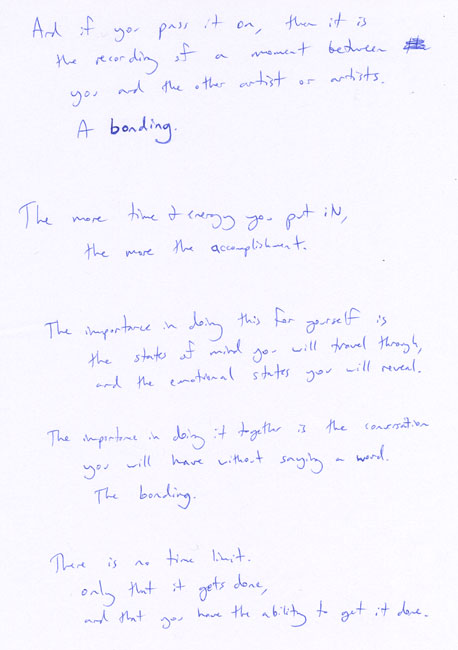 And if you pass it on, then it is
the recording of a moment between
you and the other artist or artists.
A bonding.
The more time & energy you put iN,
the more the accomplishment.
The importance in doing this for yourself is
the states of mind you will travel through,
and the emotional states you will reveal.
The importance in doing it together is the conversation
you will have without saying a word.
The bonding.
There is no time limit.
only that it gets done,
and that you have the ability to get it done.